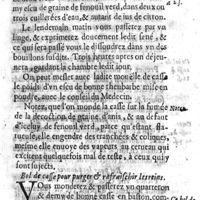 my escu de graine de fenouil verd, dans deux ou
trois cuillerées d'eau, & autant de ius de citron.
Le lendemain matin vous passerez par vn
linge, & exprimerez doucement ledit sené, &
ce qui sera passé vous le dissoudrez dans vn des
bouillons susdits. Trois heures apres on déjeu-
nera, gardant la chambre tout iour.
On peut mesler auec ladite moüelle de casse
le poids d'vn escu de bonne rheubarbe mise en
poudre, auec le conseil du Medecin.
Notez, que l'on mange la casse sur le
de la decoction de graine d'anis, & autant
de fenouil verd, pour ce qu'estant
tueuse, elle engendre des tranchées & coliques,
mesme elle enuoye des vapeurs au cerueau qui
excitent quelquefois mal de teste, à ceux qui y
sont sujects.
Bol de casse pour purger & rafraischir les reins.
VOus monderez & passerez vn quarteron
& demy de bonne casse en baston, com-